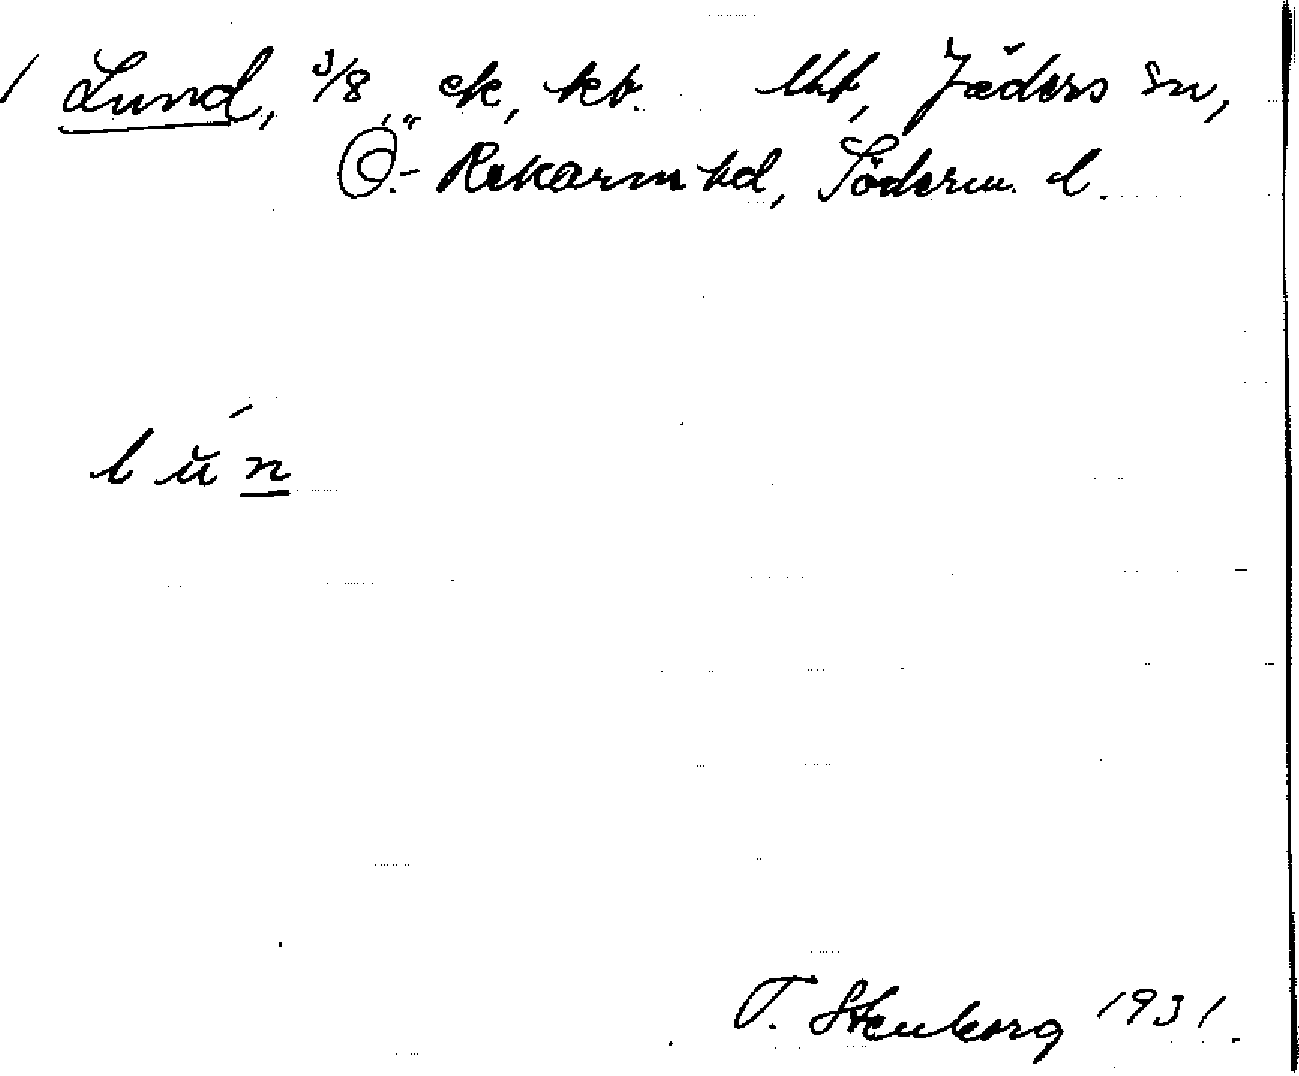 / Lund, 3/8, ek, kt. lht, Jäders sn,
Ö.- Rekarne hd, Söderm. l.
lŭń
T. Stenborg 1931.